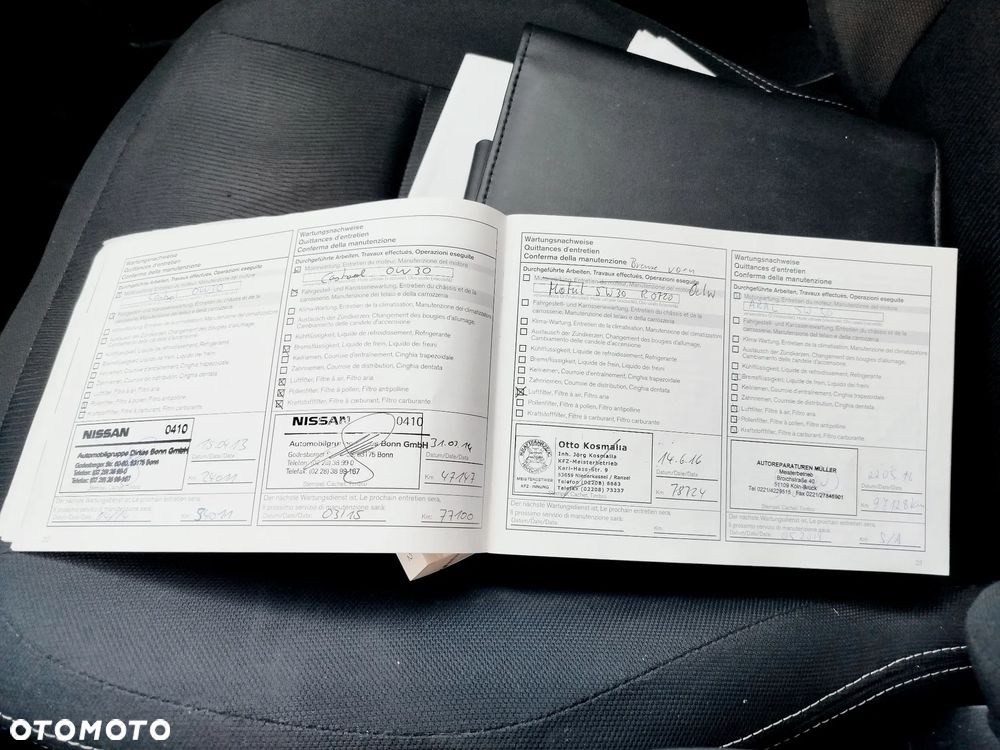 Wartungsnachweise
Quittances d'entretien
Conferma della manutenzione
Durchgeführte Arbeiten, Travaux effectués, Operazioni eseguite
0W30
Kühlflüssigkeit, Liquide de refroidissement, Refrigerante
Bremsflüssigkeit, Liquide de frein, Liquido dei freini
Keilriemen, Courroie d'entraînement, Cinghia trapezoidale
Zahnriemen, Courroie de distribution, Cinghia dentata
Luftfilter, Filtre à air, Filtro aria
Pollenfilter, Filtre à pollen, Filtro antipolline
Kraftstofffilter, Filtre à carburant, Filtro carburante
NISSAN 0410
Automobilgruppe Dirkes Bonn GmbH
15.04.13
Datum/Date/Data
Km: 24011
Der nächste Wartungsdienst ist, Le prochain entretien sera,
Il prossimo servizio di manutenzione sarà:
Wartungsnachweise
Quittances d'entretien
Conferma della manutenzione
Durchgeführte Arbeiten, Travaux effectués, Operazioni eseguite
Motorwartung, Entretien du moteur, Manutenzione del motore
Castrol 0W30
Fahrgestell- und Karosseriewartung, Entretien du châssis et de la
carrosserie, Manutenzione del telaio e della carrozzeria
Klima-Wartung, Entretien de la climatisation, Manutenzione del climatizzatore
Austausch der Zündkerzen, Changement des bougies d'allumage,
Cambiamento delle candele d'accensione
Kühlflüssigkeit, Liquide de refroidissement, Refrigerante
Bremsflüssigkeit, Liquide de frein, Liquido dei freini
Keilriemen, Courroie d'entraînement, Cinghia trapezoidale
Zahnriemen, Courroie de distribution, Cinghia dentata
Luftfilter, Filtre à air, Filtro aria
Pollenfilter, Filtre à pollen, Filtro antipolline
Kraftstofffilter, Filtre à carburant, Filtro carburante
NISSAN 0410
Bonn GmbH
53175 Bonn
31.03.14
Datum/Date/Data
Km: 47147
Der nächste Wartungsdienst ist, Le prochain entretien sera,
Il prossimo servizio di manutenzione sarà:
Datum/Date/Data: 03/15 Km: 77100
Wartungsnachweise
Quittances d'entretien
Conferma della manutenzione Bremse vorn
Durchgeführte Arbeiten, Travaux effectués, Operazioni eseguite
Motul 5W30
Fahrgestell- und Karosseriewartung, Entretien du châssis et de la
carrosserie, Manutenzione del telaio e della carrozzeria
Klima-Wartung, Entretien de la climatisation, Manutenzione del climatizzatore
Austausch der Zündkerzen, Changement des bougies d'allumage,
Cambiamento delle candele d'accensione
Kühlflüssigkeit, Liquide de refroidissement, Refrigerante
Bremsflüssigkeit, Liquide de frein, Liquido dei freini
Keilriemen, Courroie d'entraînement, Cinghia trapezoidale
Zahnriemen, Courroie de distribution, Cinghia dentata
Luftfilter, Filtre à air, Filtro aria
Pollenfilter, Filtre à pollen, Filtro antipolline
Kraftstofffilter, Filtre à carburant, Filtro carburante
Otto Kosmalla
Inh. Jörg Kosmalla
KFZ-Meisterbetrieb
Karl-Hass-Str. 9
Telefon (02208) 6663
Telefax (02208) 73337
MEISTERBETRIEB
KFZ-INNUNG
14.6.16
Datum/Date/Data
Km: 78724
Der nächste Wartungsdienst ist, Le prochain entretien sera,
Il prossimo servizio di manutenzione sarà:
Datum/Date/Data: Km:
Wartungsnachweise
Quittances d'entretien
Conferma della manutenzione
Durchgeführte Arbeiten, Travaux effectués, Operazioni eseguite
5W30
Fahrgestell- und Karosseriewartung, Entretien du châssis et de la
carrosserie, Manutenzione del telaio e della carrozzeria
Klima-Wartung, Entretien de la climatisation, Manutenzione del climatizzatore
Austausch der Zündkerzen, Changement des bougies d'allumage,
Cambiamento delle candele d'accensione
Kühlflüssigkeit, Liquide de refroidissement, Refrigerante
Bremsflüssigkeit, Liquide de frein, Liquido dei freini
Keilriemen, Courroie d'entraînement, Cinghia trapezoidale
Zahnriemen, Courroie de distribution, Cinghia dentata
Luftfilter, Filtre à air, Filtro aria
Pollenfilter, Filtre à pollen, Filtro antipolline
Kraftstofffilter, Filtre à carburant, Filtro carburante
AUTOREPARATUREN MÜLLER
Meisterbetrieb
Brochstraße 40
51109 Köln-Brück
Datum/Date/Data
Der nächste Wartungsdienst ist, Le prochain entretien sera,
Il prossimo servizio di manutenzione sarà:
Datum/Date/Data: Km:
OTOMOTO